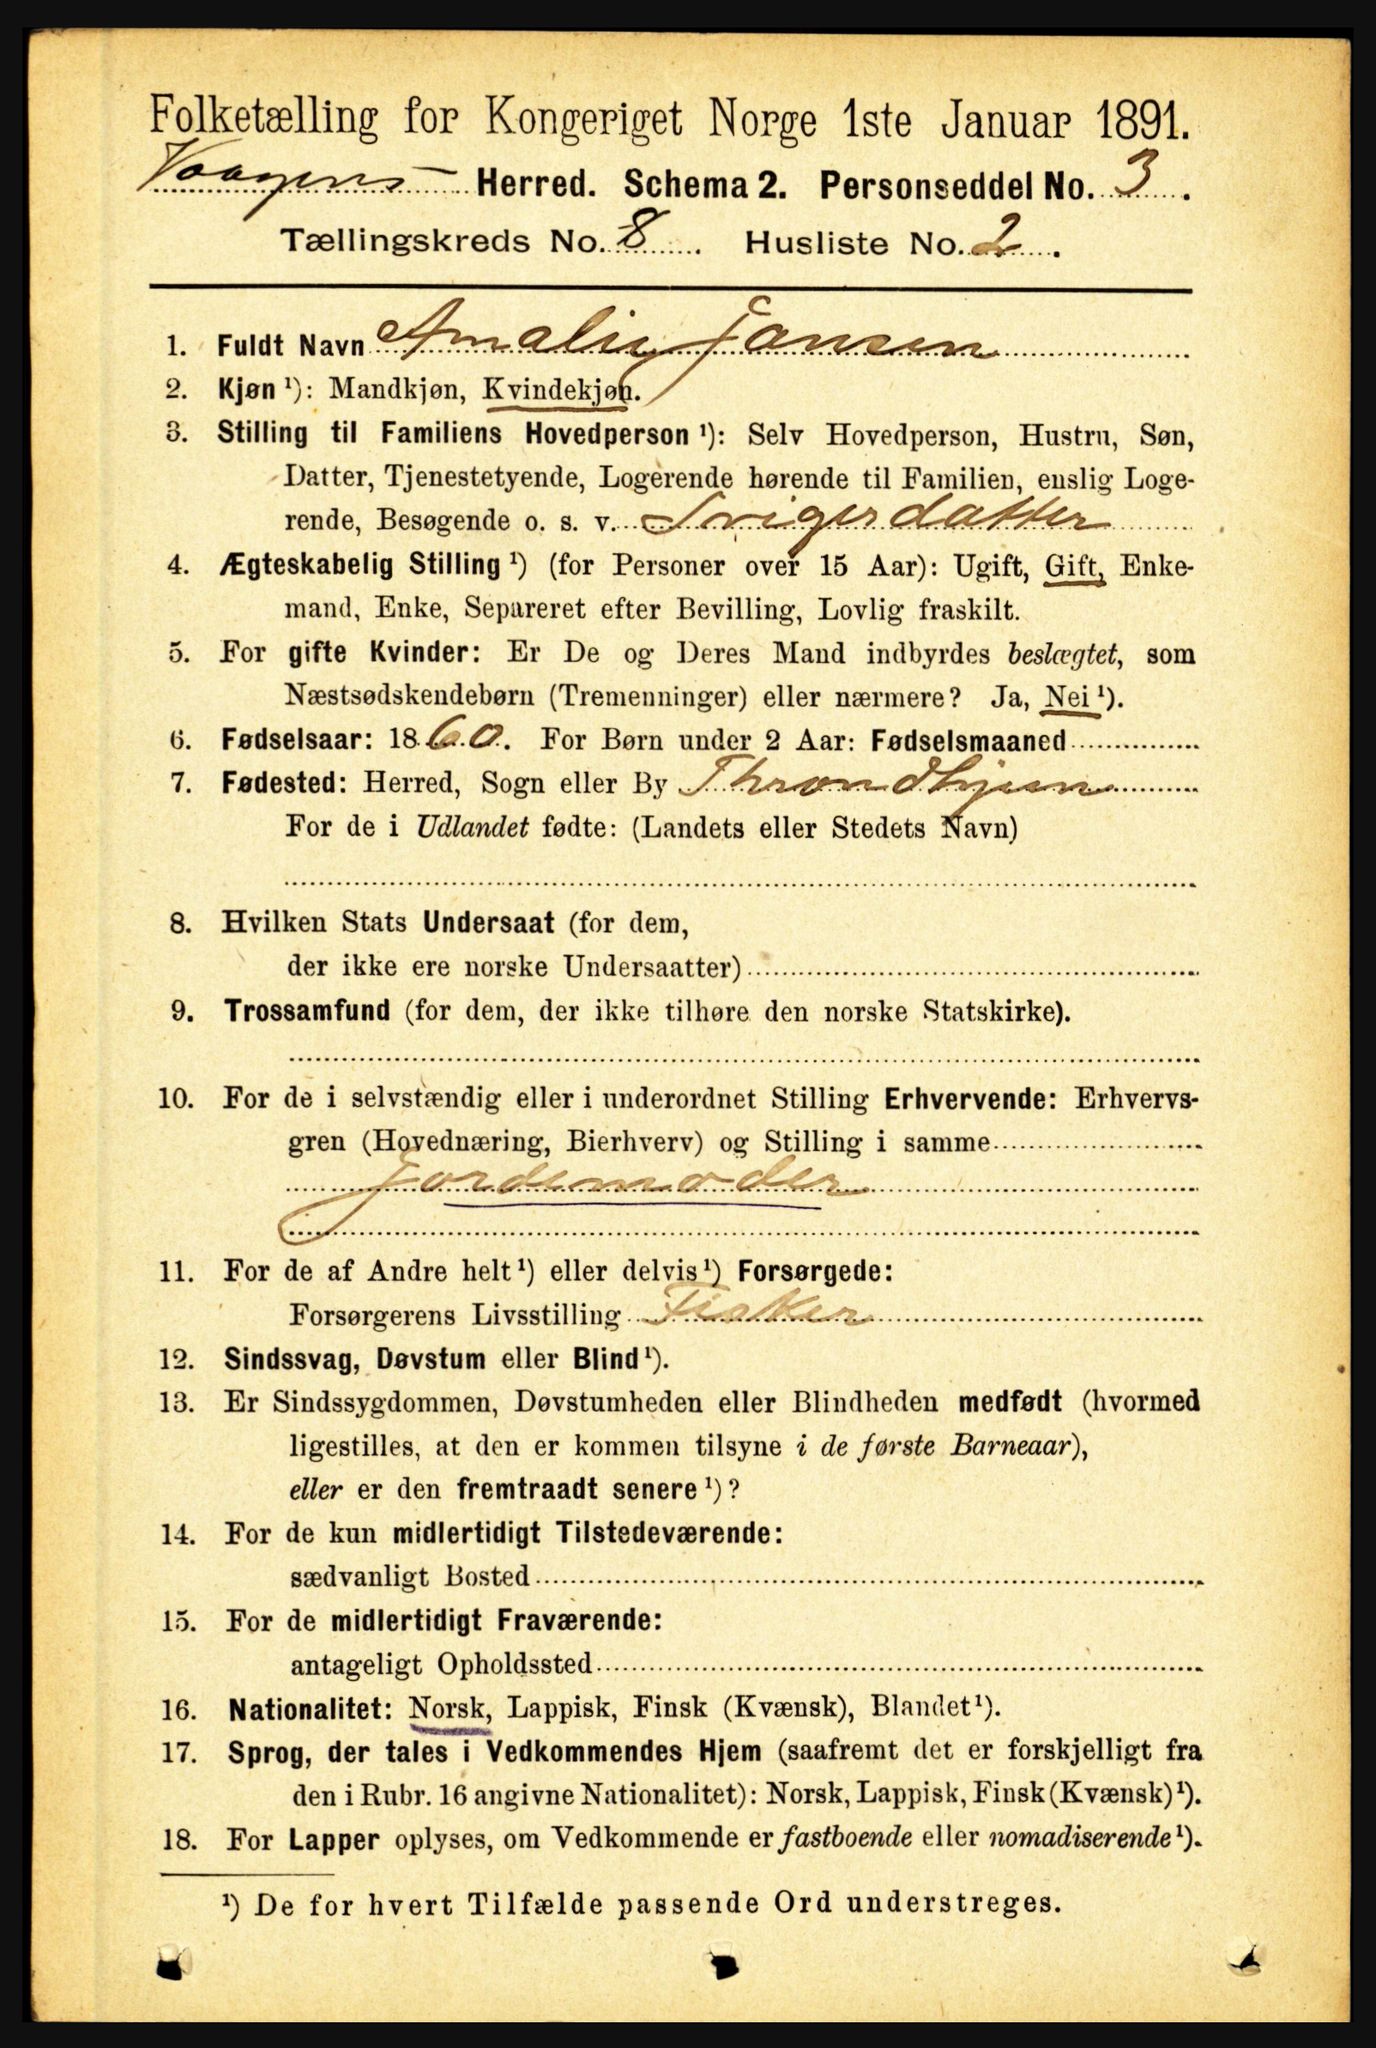 Folketælling for Kongeriget Norge 1ste Januar 1891.
Vaagens Herred. Schema 2. Personseddel No. 3.
Tællingskreds No. 8. Husliste No. 2.
1. Fuldt Navn Amalie Jansen
2. Kjøn ¹): Mandkjøn, Kvindekjøn.
3. Stilling til Familiens Hovedperson ¹): Selv Hovedperson, Hustru, Søn,
Datter, Tjenestetyende, Logerende hørende til Familien, enslig Loge-
rende, Besøgende o. s. v. Svigerdatter
4. Ægteskabelig Stilling ¹) (for Personer over 15 Aar): Ugift, Gift, Enke-
mand, Enke, Separeret efter Bevilling, Lovlig fraskilt.
5. For gifte Kvinder: Er De og Deres Mand indbyrdes beslægtet, som
Næstsødskendebørn (Tremenninger) eller nærmere? Ja, Nei ¹).
6. Fødselsaar: 1860. For Børn under 2 Aar: Fødselsmaaned
7. Fødested: Herred, Sogn eller By Throndhjem
For de i Udlandet fødte: (Landets eller Stedets Navn)
8. Hvilken Stats Undersaat (for dem,
der ikke ere norske Undersaatter)
9. Trossamfund (for dem, der ikke tilhøre den norske Statskirke).
10. For de i selvstændig eller i underordnet Stilling Erhvervende: Erhvervs-
gren (Hovednæring, Bierhverv) og Stilling i samme
Jordemoder
11. For de af Andre helt ¹) eller delvis ¹) Forsørgede:
Forsørgerens Livsstilling Fisker
12. Sindssvag, Døvstum eller Blind ¹).
13. Er Sindssygdommen, Døvstumheden eller Blindheden medfødt (hvormed
ligestilles, at den er kommen tilsyne i de første Barneaar),
eller er den fremtraadt senere ¹)?
14. For de kun midlertidigt Tilstedeværende:
sædvanligt Bosted
15. For de midlertidigt Fraværende:
antageligt Opholdssted
16. Nationalitet: Norsk, Lappisk, Finsk (Kvænsk), Blandet ¹).
17. Sprog, der tales i Vedkommendes Hjem (saafremt det er forskjelligt fra
den i Rubr. 16 angivne Nationalitet): Norsk, Lappisk, Finsk (Kvænsk) ¹).
18. For Lapper oplyses, om Vedkommende er fastboende eller nomadiserende ¹).
¹) De for hvert Tilfælde passende Ord understreges.